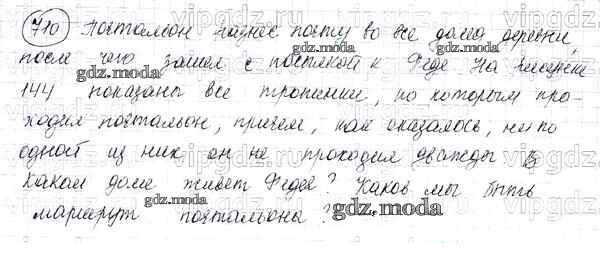 710 Почтальон разнес почту во все дома деревни,
после чего зашел с посылкой к Феде. На рисунке
144 показаны все тропинки, по которым про-
ходил почтальон, причем, как оказалось, ни по
одной из них он не проходил дважды В
каком доме живет Федя? Каков мог быть
маршрут почтальона?
gdz.moda
gdz.moda
gdz.moda
gdz.moda
gdz.moda
gdz.moda